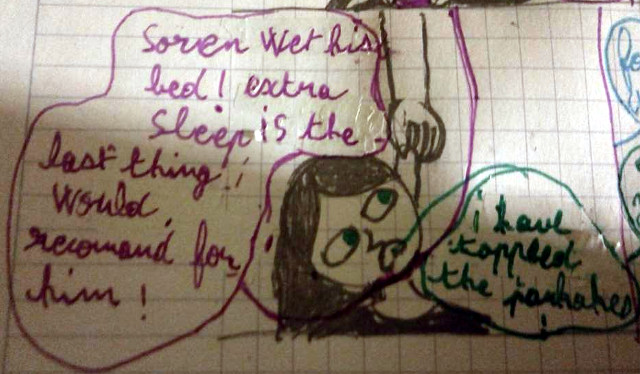 Soren wet his
bed! extra
Sleep is the
last thing i
would
recomand for
him!
i have
toppled
the
!